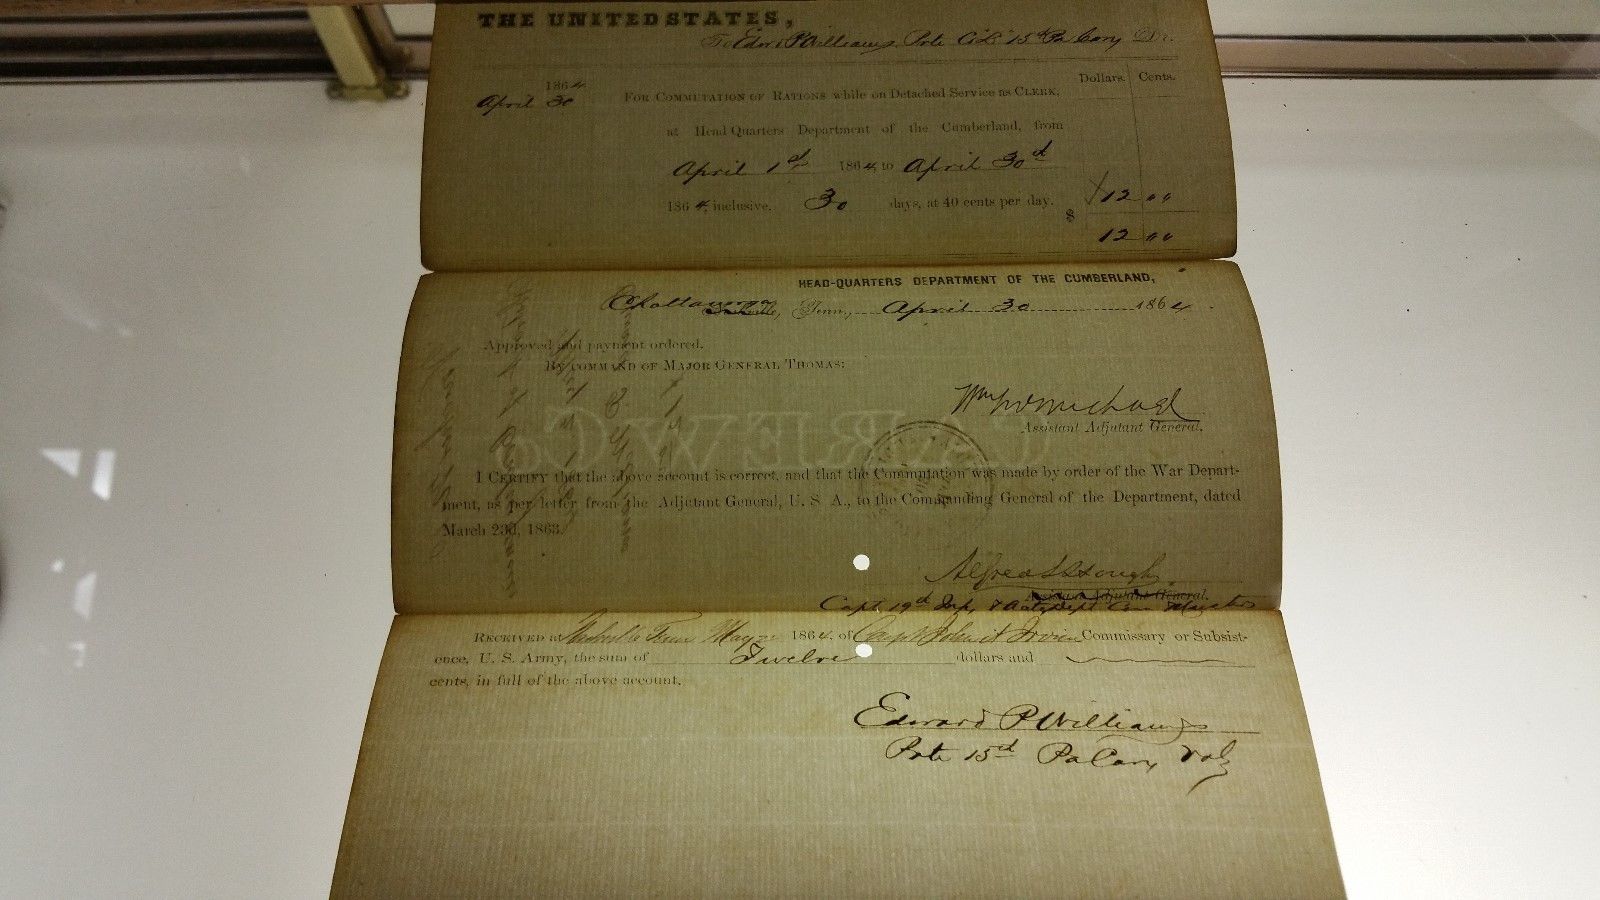 THE UNITED STATES,
To Edwd P Williams Prte Co "L" 15th Pa Cavy Dr.
Dollars. Cents.
1864
April 30
FOR COMMUTATION OF RATIONS while on Detached Service as CLERK,
at Head Quarters Department of the Cumberland, from
April 1st 1864, to April 30th
1864, inclusive. 30 days, at 40 cents per day. 12 00
$ 12 00
HEAD-QUARTERS DEPARTMENT OF THE CUMBERLAND,
Chattanooga Nashville, Tenn., April 30 1864
Approved and payment ordered.
BY COMMAND OF MAJOR GENERAL THOMAS:
Wm McMichael
Assistant Adjutant General.
I CERTIFY that the above account is correct, and that the Commutation was made by order of the War Depart-
ment, as per letter from the Adjutant General, U. S. A., to the Commanding General of the Department, dated
March 23d, 1863.
Alfred L Hough
Assistant Adjutant General.
Capt 19th Inf, & Com Musters
RECEIVED at Nashville Tenn May 1864, of Capt Irvin Commissary of Subsist-
ence, U. S. Army, the sum of Twelve dollars and
cents, in full of the above account.
Edward P Williams
Prte 15th Pa Cavy Vols